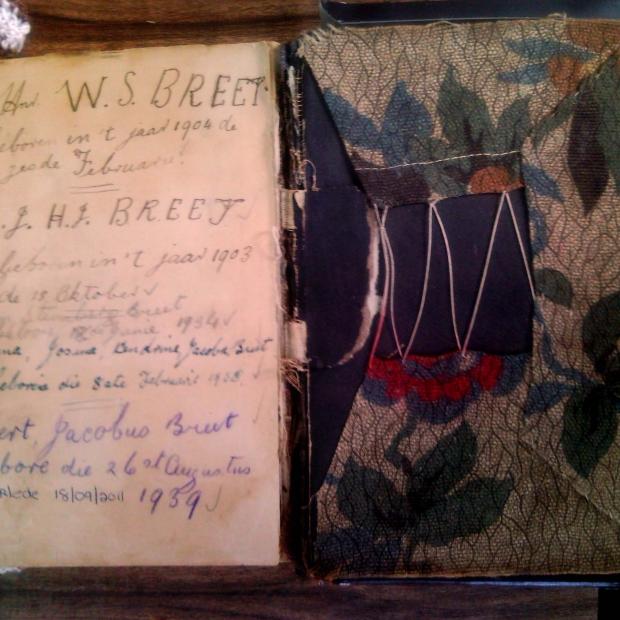 Hnr. W. S. BREET.
eboren in 't jaar 1904 de
zesde Februarie!
. J. H. J. BREET
Geboren in 't jaar 1903
de 15 Oktober
Breet
Junie 1934
Josina, Hendrina Jacoba Breet
ebore die 8ste Februarie 1938.
ert, Jacobus Breet
bore die 26st Augustus
rlede 18/09/2011 1939